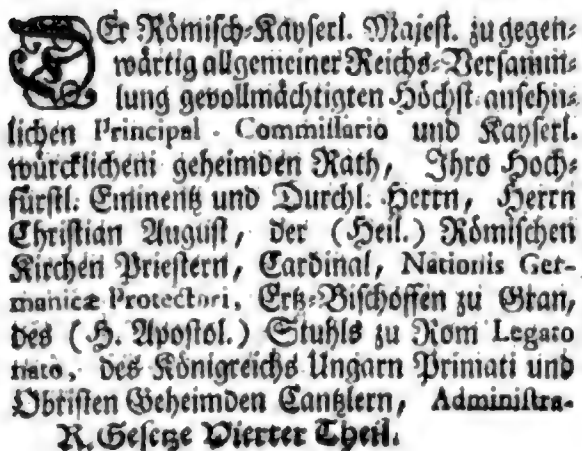 DEr Römisch-Kayserl. Majest. zu gegen-
wärtig allgemeiner Reichs-Versamm-
lung gevollmächtigten Höchst-ansehn-
lichen Principal-Commissario und Kayserl.
würcklichem geheimden Rath, Ihro Hoch-
fürstl. Eminentz und Durchl. Herrn, Herrn
Christian August, der (Heil.) Römischen
Kirchen Priestern, Cardinal, Nationis Ger-
manicæ Protectori, Ertz-Bischoffen zu Gran,
des (H. Apostol.) Stuhls zu Rom Legato
nato, des Königreichs Ungarn Primati und
Obristen Geheimden Cantzlern, Administra-
R. Gesetze Vierter Theil.